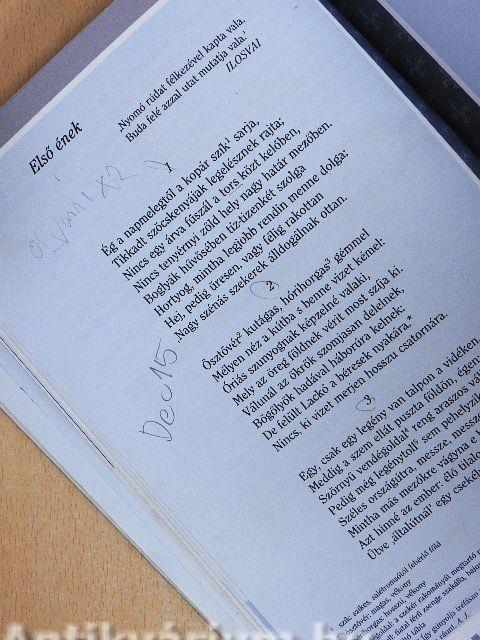 Első ének
‚Nyomó rúdat félkezével kapta vala,
Buda felé azzal utat mutatja vala.'
ILOSVAI
olvasni x2
1
Ég a napmelegtől a kopár szík¹ sarja,
Tikkadt szöcskenyájak legelésznek rajta;
Nincs egy árva fűszál a tors közt kelőben,
Nincs tenyérnyi zöld hely nagy határ mezőben.
Boglyák hűvösében tíz-tizenkét szolga
Hortyog, mintha legjobb rendin menne dolga;
Hej, pedig üresen, vagy félig rakottan
Nagy szénás szekerek álldogálnak ottan.
Dec 15
2
Ösztövér² kútágas, hórihorgas³ gémmel
Mélyen néz a kútba s benne vizet kémel:
Óriás szunyognak képzelné valaki,
Mely az öreg földnek vérit most szíja ki.
Válunál az ökrök szomjasan delelnek,
Bőgölyök hadával háborúra kelnek:
De felült Lackó a béresek nyakára,*
Nincs, ki vizet merjen hosszu csatornára.
3
Egy, csak egy legény van talpon a vidéken,
Meddig a szem ellát puszta földön, égen;
Szörnyü vendégoldal⁴ reng araszos
Pedig még legénytoll⁵ sem pehelyzik
Széles országútra, messze, messze
Mintha más mezőkre vágyna e
Azt hinné az ember: élő tilalo
Ütve ‚általútnál' egy csekély